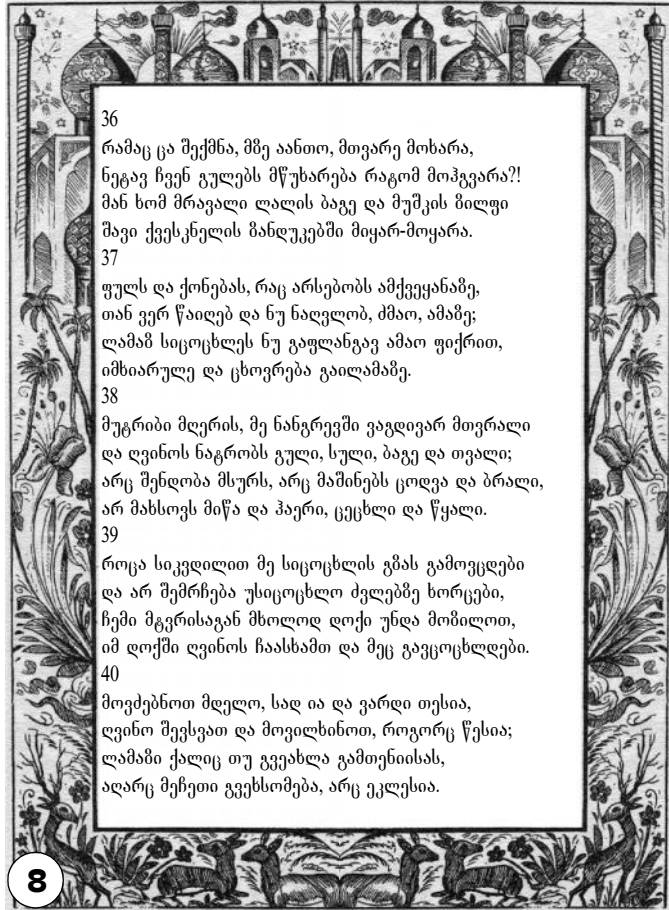 36
რამაც ცა შექმნა, მზე აანთო, მთვარე მოხარა,
ნეტავ ჩვენ გულებს მწუხარება რატომ მოჰგვარა?!
მან ხომ მრავალი ლალის ბაგე და მუშკის ზილფი
შავი ქვესკნელის ზანდუკებში მიყარ-მოყარა.
37
ფულს და ქონებას, რაც არსებობს ამქვეყანაზე,
თან ვერ წაიღებ და ნუ ნაღვლობ, ძმაო, ამაზე;
ლამაზ სიცოცხლეს ნუ გაფლანგავ ამაო ფიქრით,
იმხიარულე და ცხოვრება გაილამაზე.
38
მუტრიბი მღერის, მე ნანგრევში ვაგდივარ მთვრალი
და ღვინოს ნატრობს გული, სული, ბაგე და თვალი;
არც შენდობა მსურს, არც მაშინებს ცოდვა და ბრალი,
არ მახსოვს მიწა და ჰაერი, ცეცხლი და წყალი.
39
როცა სიკვდილით მე სიცოცხლის გზას გამოვცდები
და არ შემრჩება უსიცოცხლო ძვლებზე ხორცები,
ჩემი მტვრისაგან მხოლოდ დოქი უნდა მოზილოთ,
იმ დოქში ღვინოს ჩაასხამთ და მეც გავცოცხლდები.
40
მოვძებნოთ მდელო, სად ია და ვარდი თესია,
ღვინო შევსვათ და მოვილხინოთ, როგორც წესია;
ლამაზი ქალიც თუ გვეახლა გამთენიისას,
აღარც მეჩეთი გვეხსომება, არც ეკლესია.
8